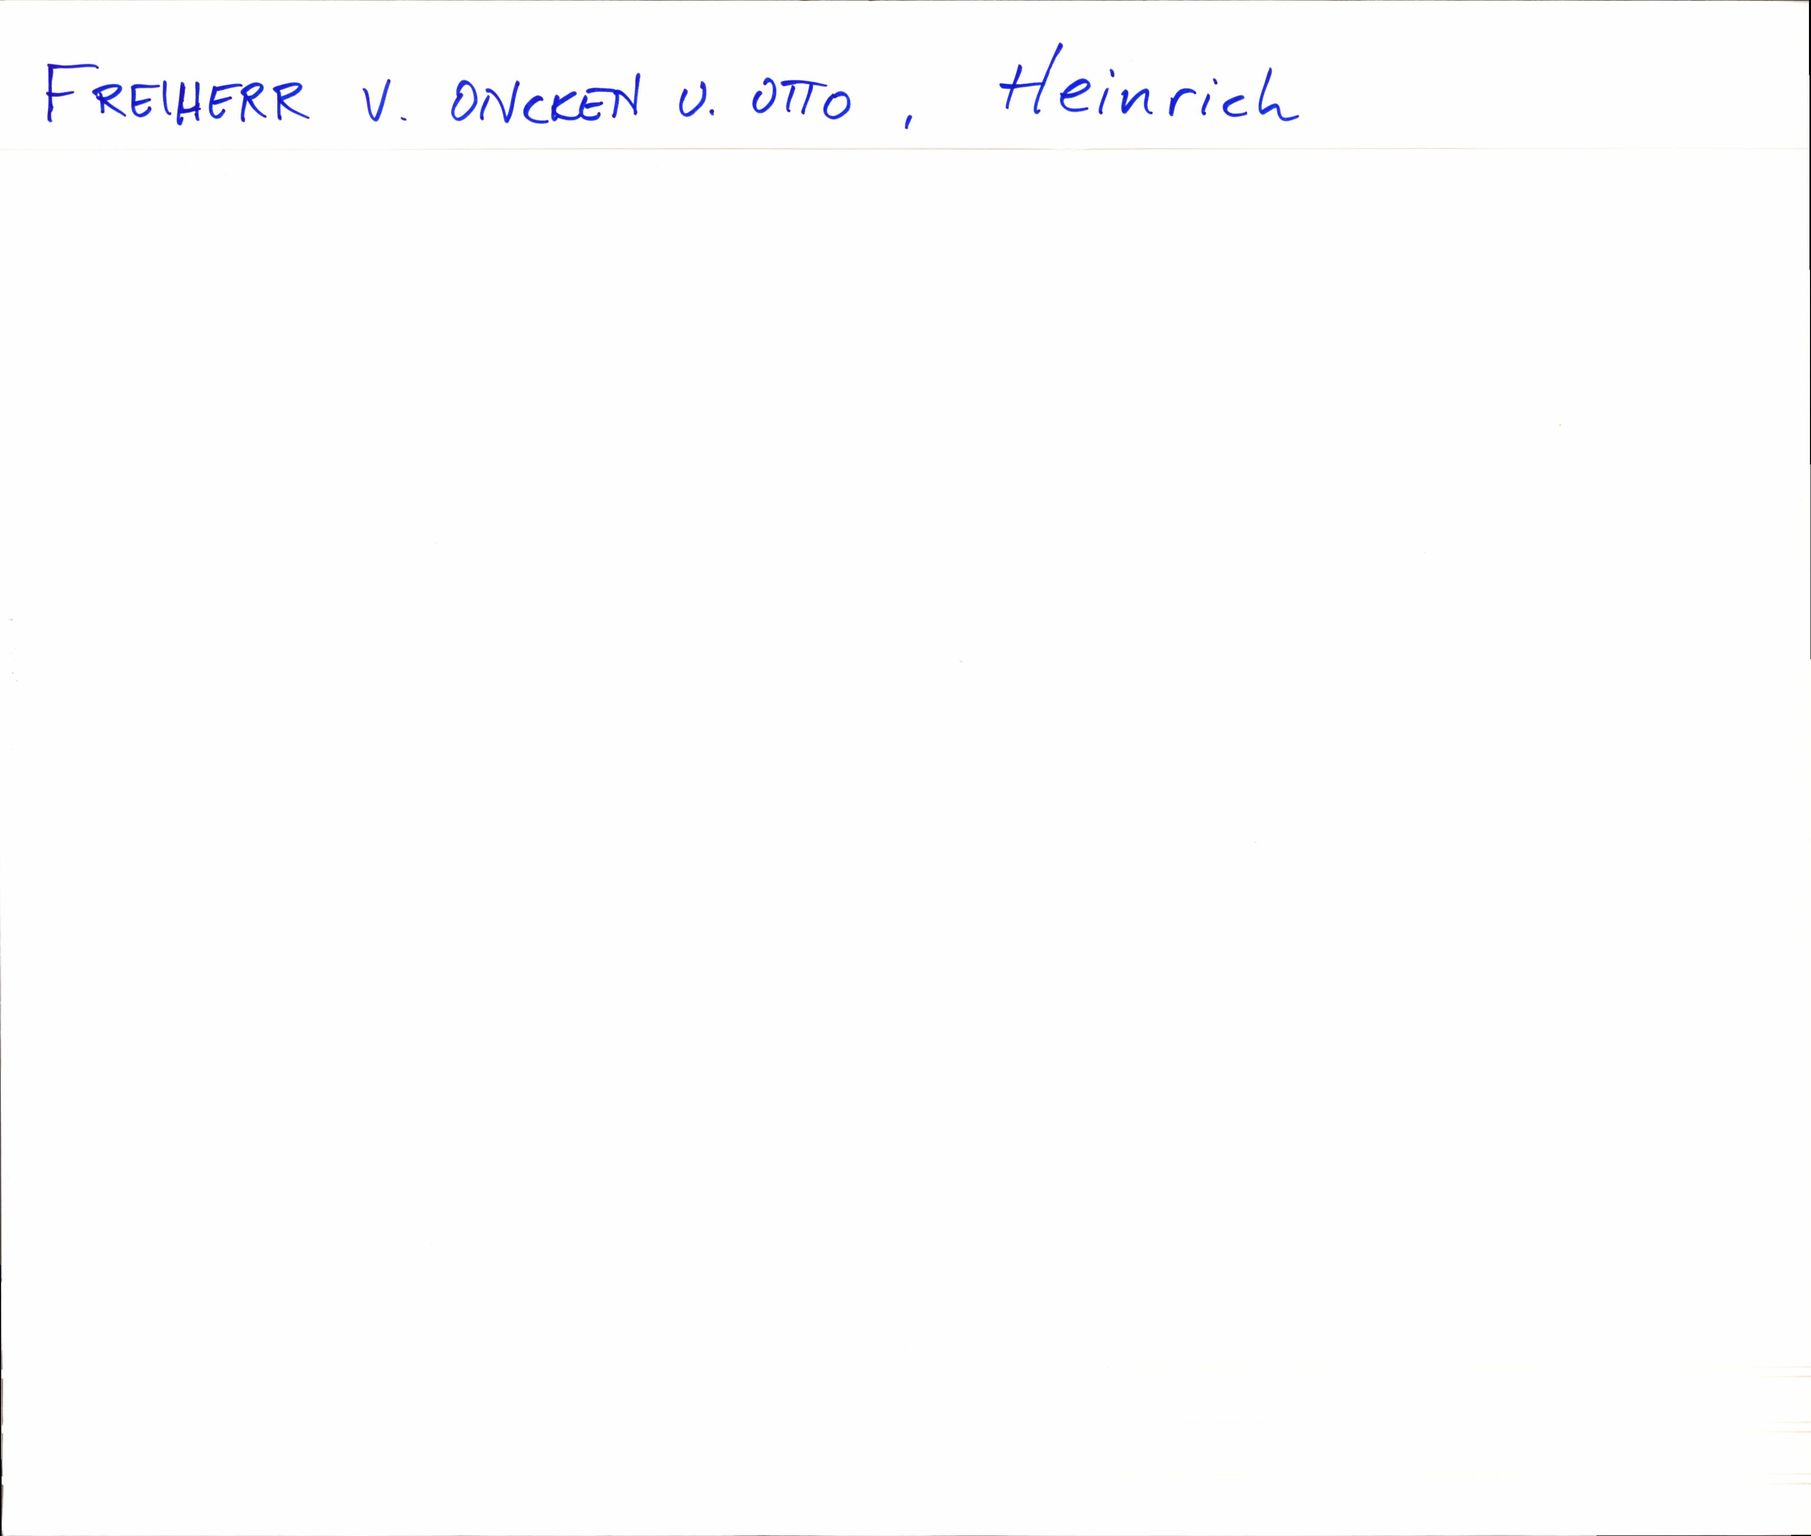 FREIHERR V. ONCKEN U. OTTO, Heinrich